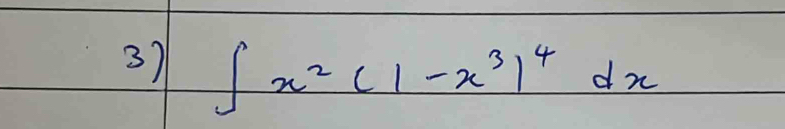 3) ∫ x² (1 - x³)⁴ dx